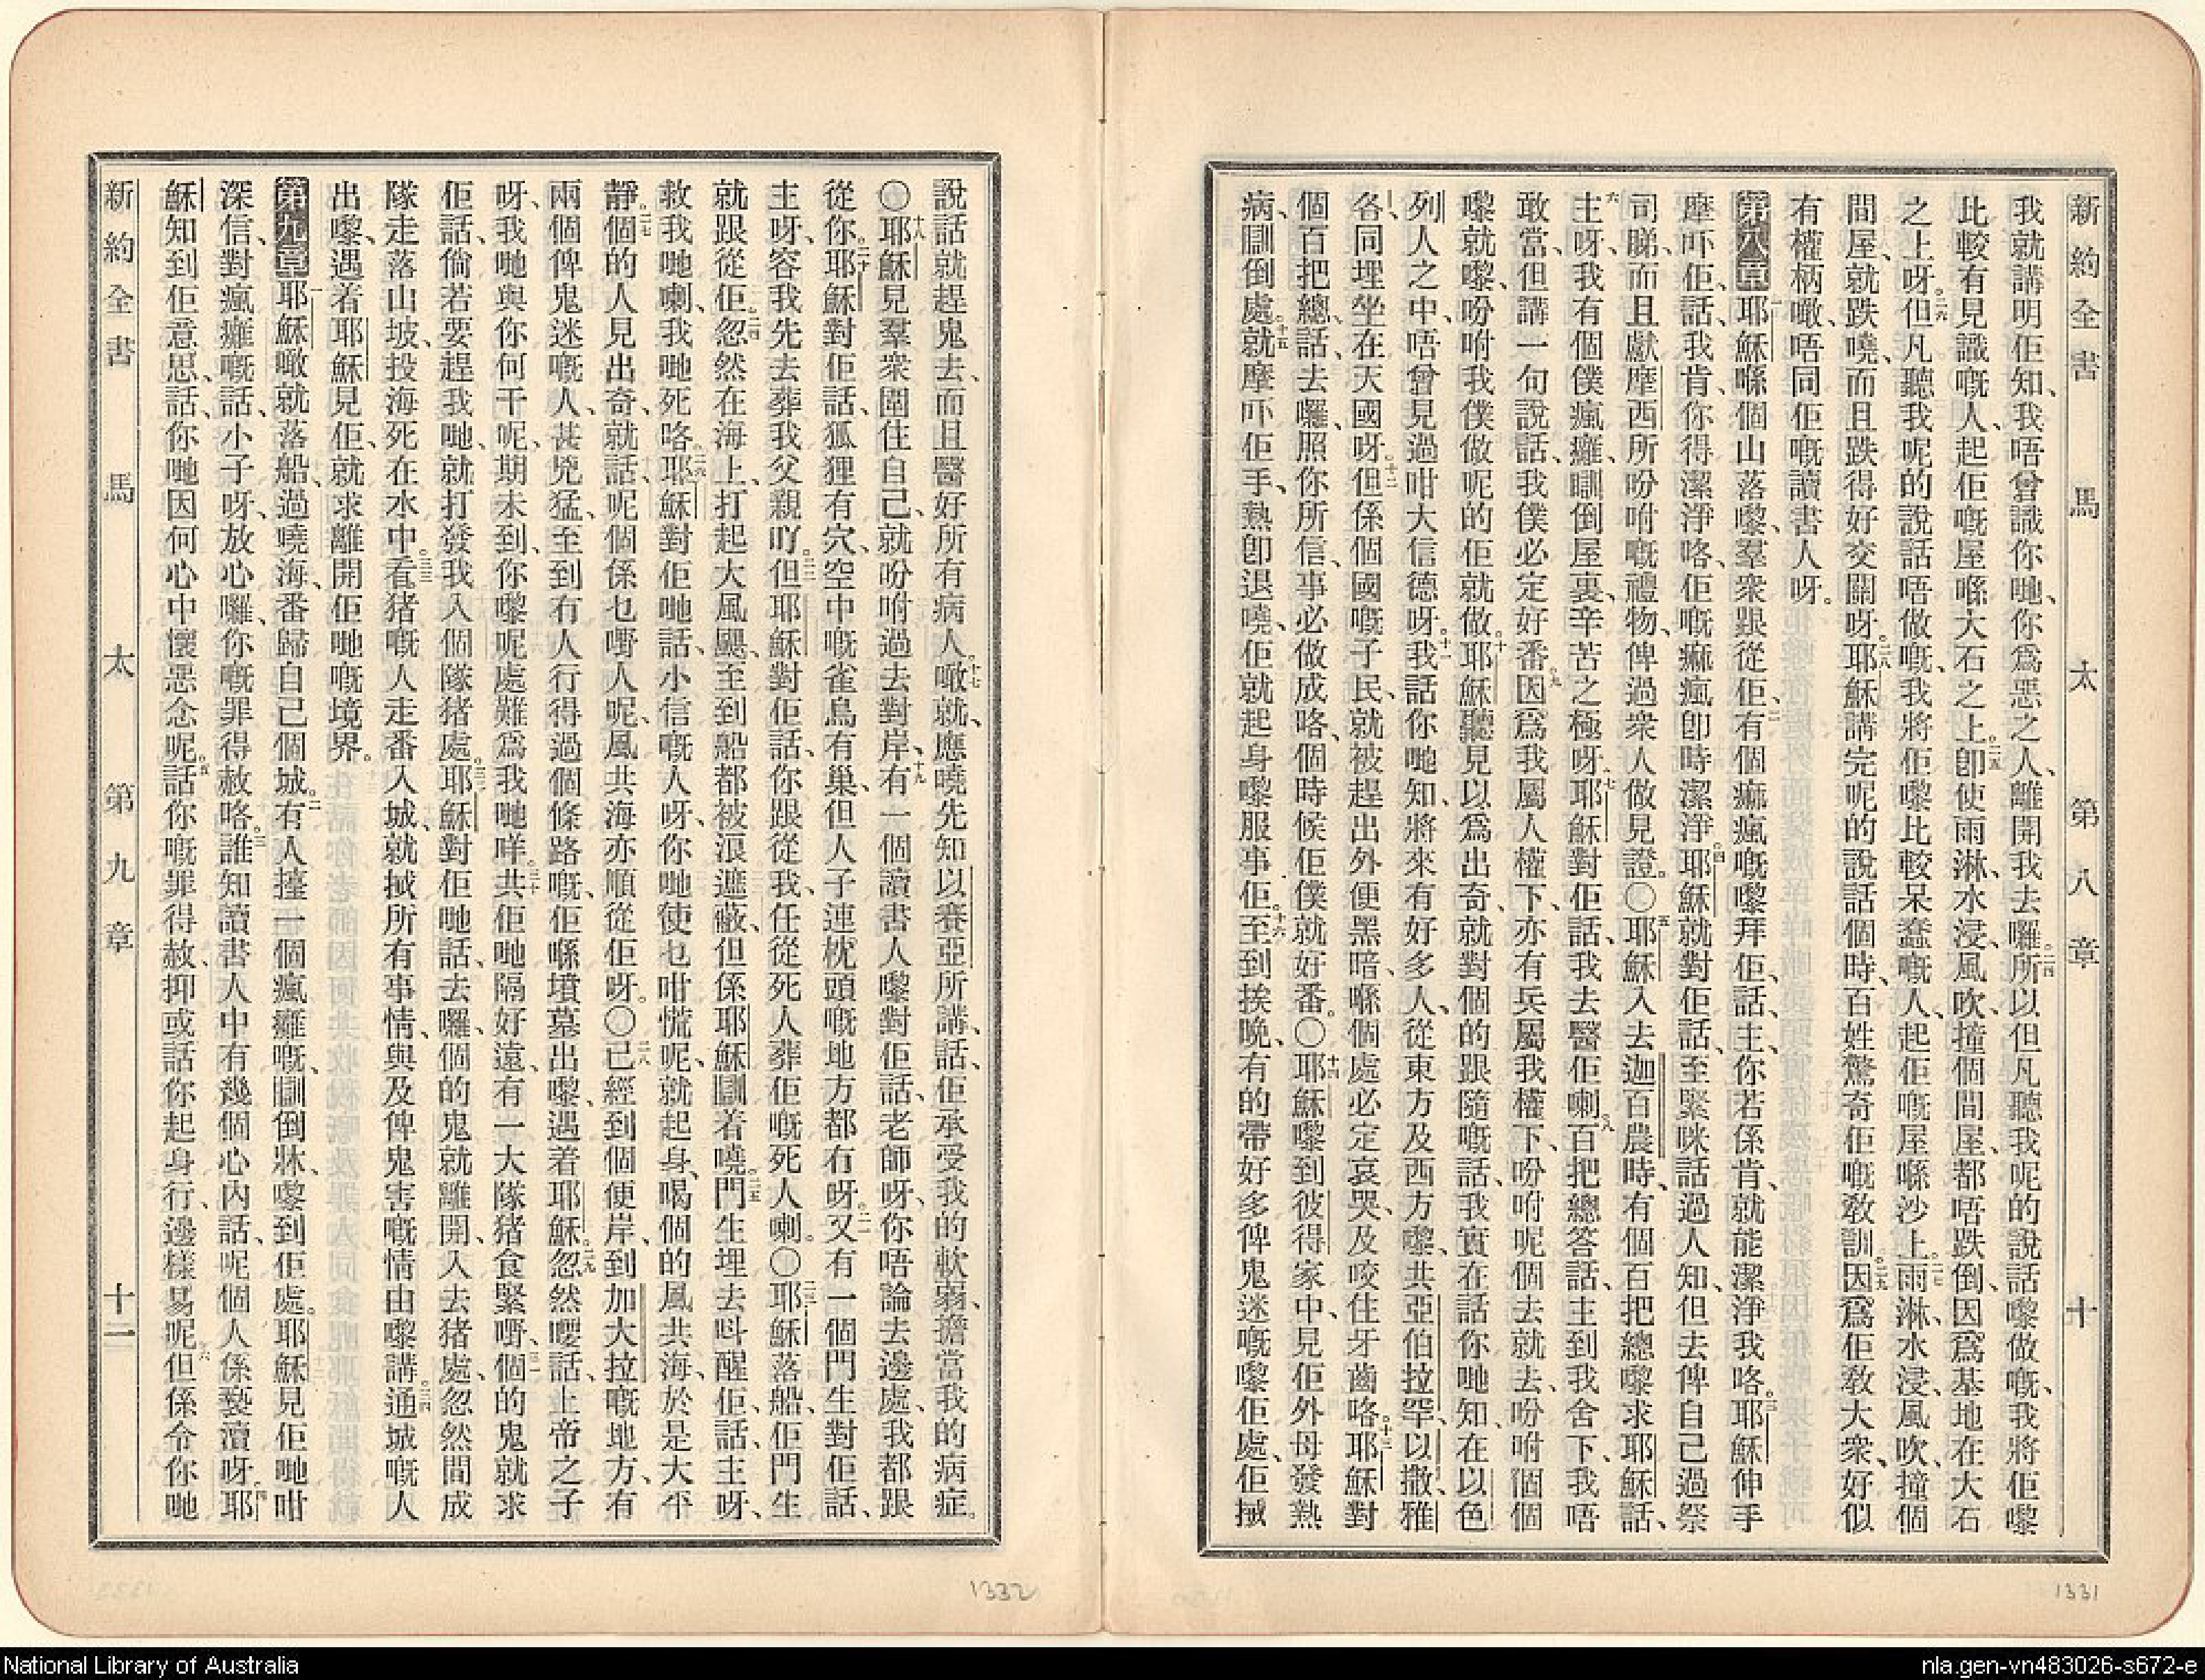 新約全書 馬太 第八章 十
我就講明佢知、我唔曾識你哋、你爲惡之人、離開我去囉。二四所以但凡聽我呢的說話嚟做嘅、我將佢嚟
比較有見識嘅人、起佢嘅屋喺大石之上。二五卽使雨淋、水浸、風吹、撞個間屋、都唔跌倒、因爲基地在大石
之上呀。二六但凡聽我呢的說話唔做嘅、我將佢嚟比較呆蠢嘅人、起佢嘅屋喺沙上。二七雨淋、水浸、風吹、撞個
間屋、就跌嘵、而且跌得好交關呀。二八耶穌講完呢的說話個時、百姓驚奇佢嘅敎訓。二九因爲佢敎大衆、好似
有權柄噉、唔同佢嘅讀書人呀。
第八章 一耶穌喺個山落嚟、羣衆跟從佢、二有個痲瘋嘅嚟拜佢、話、主、你若係肯、就能潔淨我咯。三耶穌伸手
摩吓佢、話、我肯、你得潔淨咯、佢嘅痲瘋卽時潔淨。四耶穌就對佢話、至緊咪話過人知、但去俾自己過祭
司睇、而且獻摩西所吩咐嘅禮物、俾過衆人做見證。〇五耶穌入去迦百農時、有個百把總嚟求耶穌話、
六主呀、我有個僕瘋癱、瞓倒屋裏、辛苦之極呀。七耶穌對佢話、我去醫佢喇。八百把總答話、主到我舍下、我唔
敢當、但講一句說話、我僕必定好番。九因爲我屬人權下、亦有兵屬我權下、吩咐呢個去就去、吩咐個個
嚟就嚟、吩咐我僕做呢的佢就做。十耶穌聽見以爲出奇、就對個的跟隨嘅話、我實在話你哋知、在以色
列人之中、唔曾見過咁大信德呀。十一我話你哋知、將來有好多人、從東方及西方嚟、共亞伯拉罕、以撒、雅
各、同埋坐在天國呀。十二但係個國嘅子民、就被趕出外便黑暗、喺個處必定哀哭、及咬住牙齒咯。十三耶穌對
個百把總話、去囉、照你所信、事必做成咯、個時候佢僕就好番。〇十四耶穌嚟到彼得家中、見佢外母發熱
病、瞓倒處。十五就摩吓佢手、熱卽退嘵、佢就起身嚟服事佢。十六至到挨晚、有的帶好多俾鬼迷嘅嚟佢處、佢揻
說話就趕鬼去、而且醫好所有病人。十七噉就應嘵先知以賽亞所講、話、佢承受我的軟弱、擔當我的病症。
〇十八耶穌見羣衆圍住自己、就吩咐過去對岸、十九有一個讀書人嚟對佢話、老師呀、你唔論去邊處、我都跟
從你。二十耶穌對佢話、狐狸有穴、空中嘅雀鳥有巢、但人子連枕頭嘅地方都冇呀。二一又有一個門生對佢話、
主呀、容我先去葬我父親吖。二二但耶穌對佢話、你跟從我、任從死人葬佢嘅死人喇。〇二三耶穌落船、佢門生
就跟從佢。二四忽然在海上、打起大風颶、至到船都被浪遮蔽、但係耶穌瞓着嘵。二五門生埋去叫醒佢、話、主呀、
救我哋喇、我哋死咯。二六耶穌對佢哋話、小信嘅人呀、你哋使乜咁慌呢、就起身、喝個的風共海、於是大平
靜。二七個的人見出奇、就話、呢個係乜嘢人呢、風共海亦順從佢呀。〇二八已經到個便岸、到加大拉嘅地方、有
兩個俾鬼迷嘅人、甚兇猛、至到有人行得過個條路嘅、佢喺墳墓出嚟、遇着耶穌。二九忽然嚶話、上帝之子
呀、我哋與你何干呢、期未到、你嚟呢處難爲我哋咩。三十共佢哋隔好遠、有一大隊猪食緊嘢、三一個的鬼就求
佢話、倘若要趕我哋、就打發我入個隊猪處。三二耶穌對佢哋話、去囉、個的鬼就離開、入去猪處、忽然間成
隊走落山坡、投海死在水中。三三看猪嘅人走番入城、就揻所有事情、與及俾鬼害嘅情由嚟講。三四通城嘅人
出嚟、遇着耶穌、見佢、就求離開佢哋嘅境界。
第九章 一耶穌噉就落船、過嘵海、番歸自己個城。二有人擡一個瘋癱嘅、瞓倒牀、嚟到佢處。耶穌見佢哋咁
深信、對瘋癱嘅話、小子呀、放心囉、你嘅罪得赦咯。三誰知讀書人中有幾個心內話、呢個人係褻瀆呀。四耶
穌知到佢意思、話、你哋因何心中懷惡念呢。五話你嘅罪得赦、抑或話你起身行、邊樣易呢。六但係令你哋
新約全書 馬太 第九章 十二
1332
1331
National Library of Australia
nla.gen-vn483026-s672-e